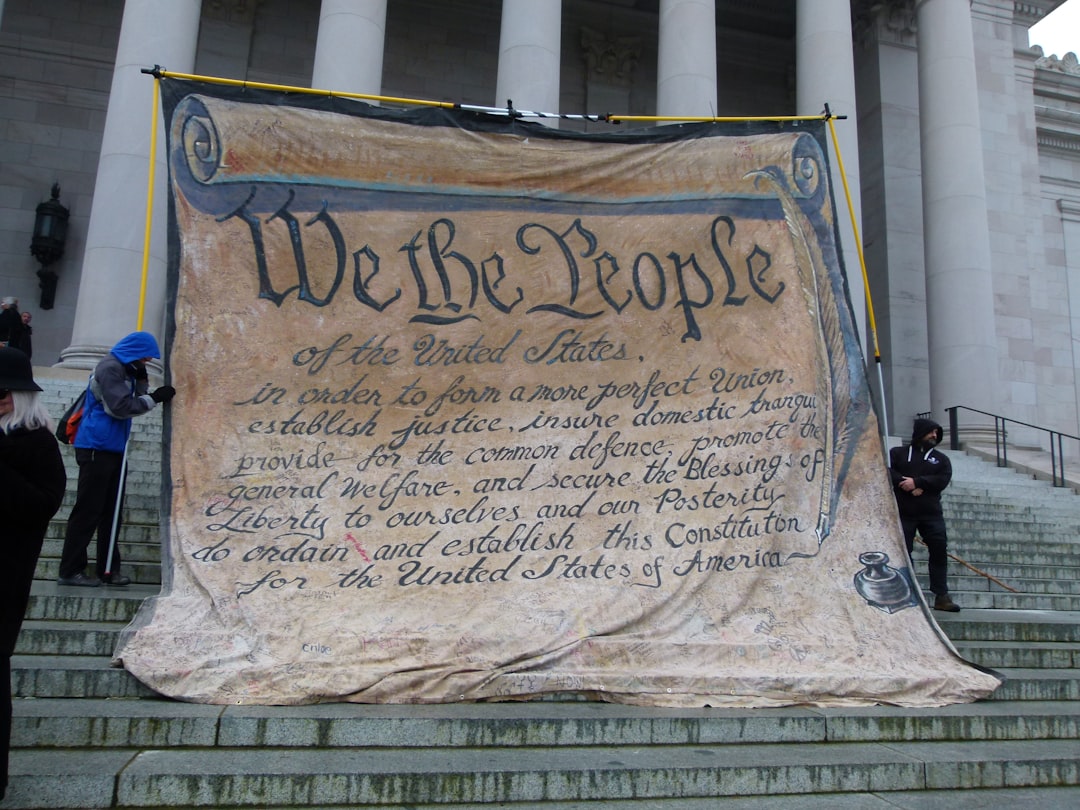 We the People
of the United States,
in order to form a more perfect Union,
establish justice, insure domestic tranqui
provide for the common defence, promote the
general Welfare, and secure the Blessings of
Liberty to ourselves and our Posterity
do ordain and establish this Constitution
for the United States of America
Chloe